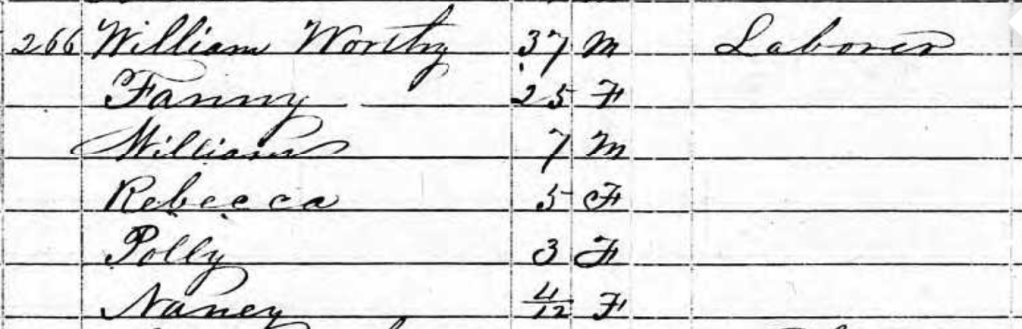 266 William Worthy 37 M Laborer
Fanny 25 F
William 7 M
Rebecca 5 F
Polly 3 F
Nancy 4/12 F